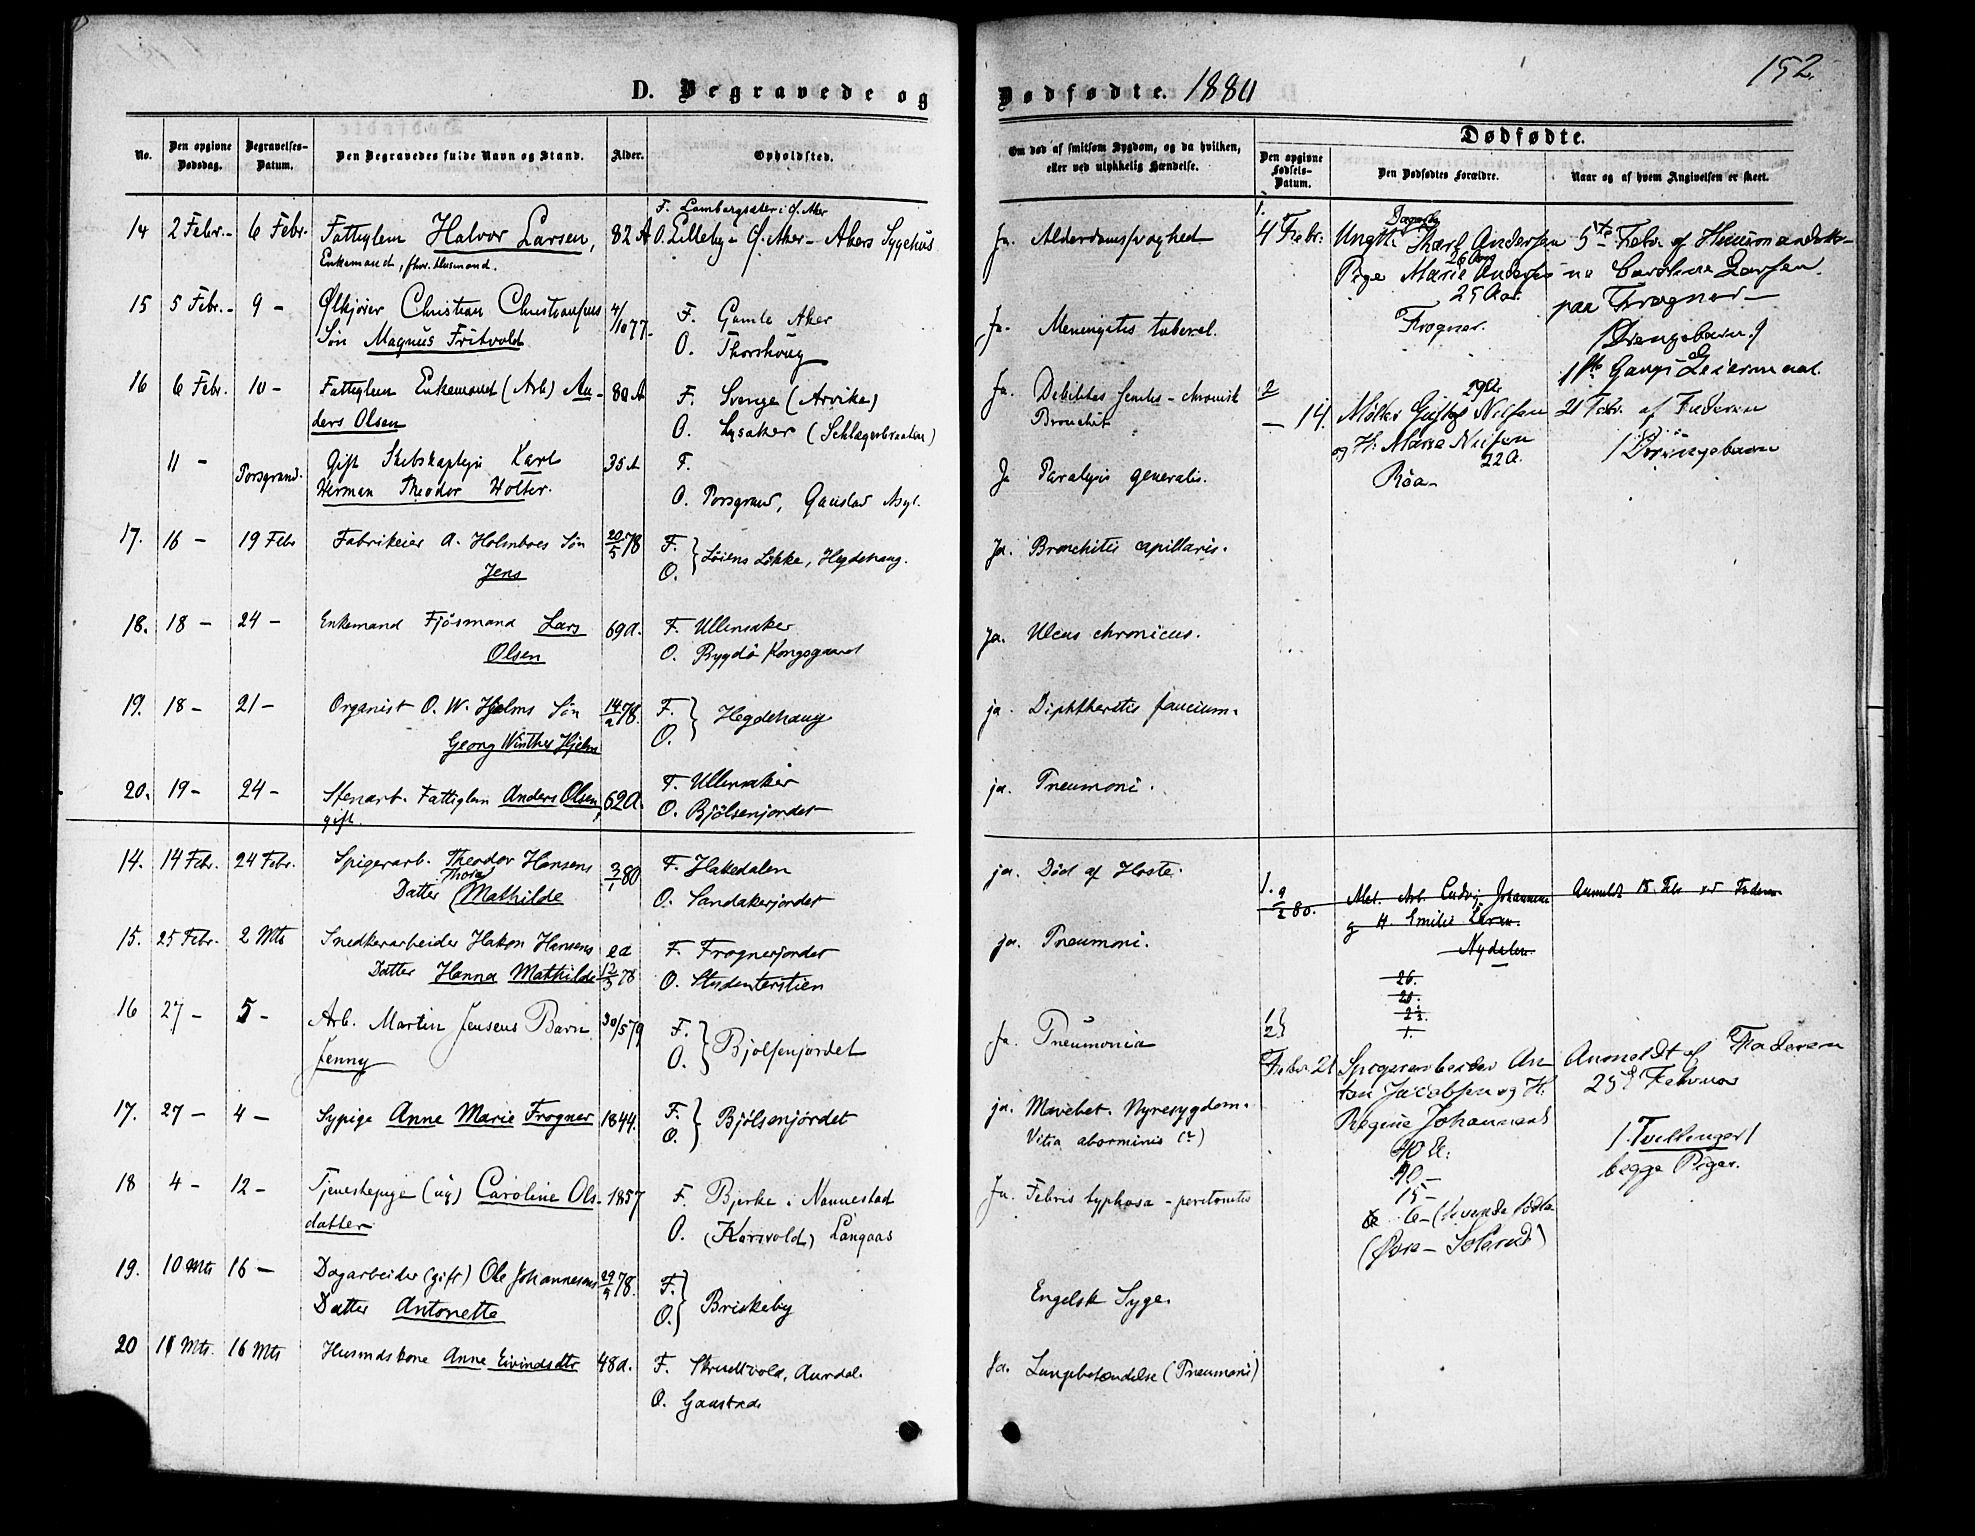 152.
D. Begravede og Dødfødte. 1880
No.
Den opgivne Dødsdag.
Begravelses-Datum.
Den Begravedes fulde Navn og Stand.
Alder.
Opholdsted.
Om død af smitsom Sygdom, og da hvilken, eller ved ulykkelig Hændelse.
Dødfødte.
Den opgivne Fødsels-Datum.
Den Dødfødtes Forældre.
Naar og af hvem Angivelsen er skeet.
14 2 Febr. - 6 Febr. Fattiglem Halvor Larsen, 82 A
Enkemand, fhv. Husmand.
O. Lilleby - Ø. Aker - Akers Sygehus
Ja. Alderdomssvaghed
15 5 Febr. - 9 - Ølkjører Christian Christiansens 4/10 77.
Søn Magnus Fritvold
F. Gamle Aker
O. Thorshoug
Ja. Meningitis tubercl.
16 6 Febr. 10 - Fattiglem Enkemand (Arb) An-
ders Olsen
80 A
F. Sverige (Arvika)
O. Lysaker (Schlægerbraaten)
Ja. Debilitas senilis - chronisk
Bronchit
11 - Porsgrund. Gift Skibskaptejn Karl 35 A
Herman Theodor Holter.
F.
O. Porsgrund, Gaustad Asyl.
Ja Paralysis generalis.
17. 16 - 19 Febr Fabrikeier A. Holmboes Søn 20/5 78
Jens
F.
O. } Løiens Løkke, Hegdehaug.
Ja. Bronchitis capillaris.
18. 18 - 24 - Enkemand Fjøsmand Lars 69 A.
Olsen
F. Ullensaker
O. Bygdø Kongsgaard
Ja. Ulcus chronicus.
19. 18 - 21 - Organist O. W. Hjelms Søn 14/2 78.
Georg Winther Hjelm
F.
O. } Hegdehaug
ja. Diphtheritis faucium.
20. 19 - 24 - Stenarb. Fattiglem Anders Olsen, 62 A.
gift.
F. Ullensaker
O. Bjølsenjordet
ja. Pneumoni.
14. 14 Febr. 24 Febr. Spigerarb. Theodor Hansens 3/1 80
Datter Thora Mathilde
F. Hakedalen
O. Sandakerjordet
ja. Død af Hoste.
15. 25 Febr. 2 Mts Snedkerarbeider Hakon Hansens
Datter Hanna Mathilde 12/3 78
F. Frognerjordet
O. Studenterstien
ja. Pneumoni.
16 27 - 5 - Arb. Martin Jensens Barn 30/5 79
Jenny
F.
O. } Bjølsenjordet
Ja. Pneumonia
17. 27 - 4 - Sypige Anne Marie Frogner 1844.
F.
O. } Bjølsenjordet
ja. Mavebet. Nyresygdom.
18 4 - 12 - Tjenestepige (ug) Caroline Ols- 1857
datter
F. Bjerke i Nannestad
O. (Korsvold) Langaas
Ja. Febris typhosa - peritonitis
19. 10 Mts 16 - Dagarbeider (gift) Ole Johannesens 78.
Datter Antonette
F.
O. } Briskeby
Engelsk Syge.
20 11 Mts. 16 Mts Husmdskone Anne Eivindsdtr 48 A.
F. Aurdal.
O. Gaustad
Ja. Lungebetændelse (Pneumoni)
1.
4 Febr. Ungk. Karl Andersen
26 Aar
Pige Marie Anders
25 Aar.
Frogner.
5te Febr. af Husmandsko-
ne Caroline Larsen
paa Frogner -
(Drengebarn.)
1ste Gangs Leiermaal.
2
- 14. Møller Gustav Nilsen 29 A.
og H. Marie Nilsen
22 A.
Røa -
21 Febr. af Faderen
(Drengebarn
1. 9/2 80. Arb. Ludvig Johannesen
og H. Emilie Larsen.
Nydalen
Anmeldt 15. Febr. v. Faderen
1
2 }
Febr. 21 Spigerarbeider An-
ton Jacobsen og H.
Regine Johannesd
40 A.
40 -
15 -
Anmeldt af Faderen
25de Februar
(Tvillinger)
begge Piger.